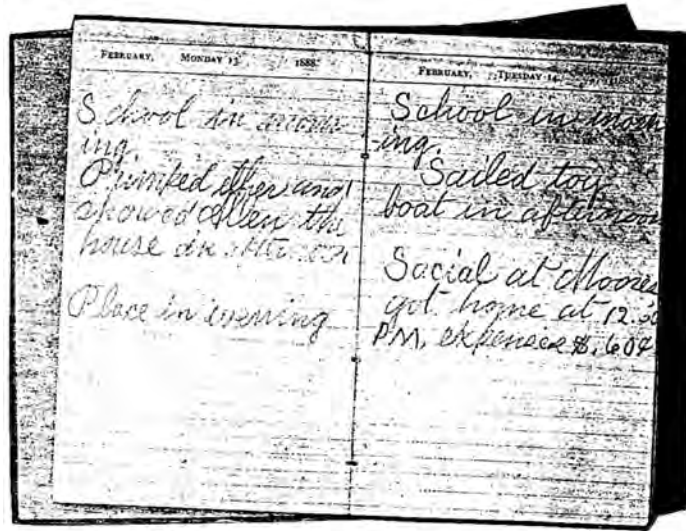 FEBRUARY, MONDAY 13 1888.
School in morn
ing.
showed Allen the
house
Place in evening
FEBRUARY, TUESDAY 14, 1888.
School in morn
ing.
Sailed toy
boat in afternoon
Social at Moores
got home at 12.30
PM, expenses $.60¢